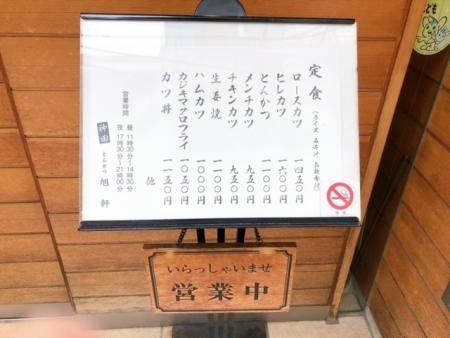 定食 (ライス みそ汁 お新香付)
ロースカツ 一四五〇円
ヒレカツ 一六〇〇円
とんかつ 一一〇〇円
メンチカツ 九五〇円
チキンカツ 九五〇円
生姜焼 一一〇〇円
ハムカツ 一〇〇〇円
カジキマグロフライ 一〇五〇円
カツ丼 一一五〇円
他
営業時間
昼 11時30分〜14時30分
夜 17時30分〜21時00分
神田 とんかつ 旭軒
いらっしゃいませ
営業中